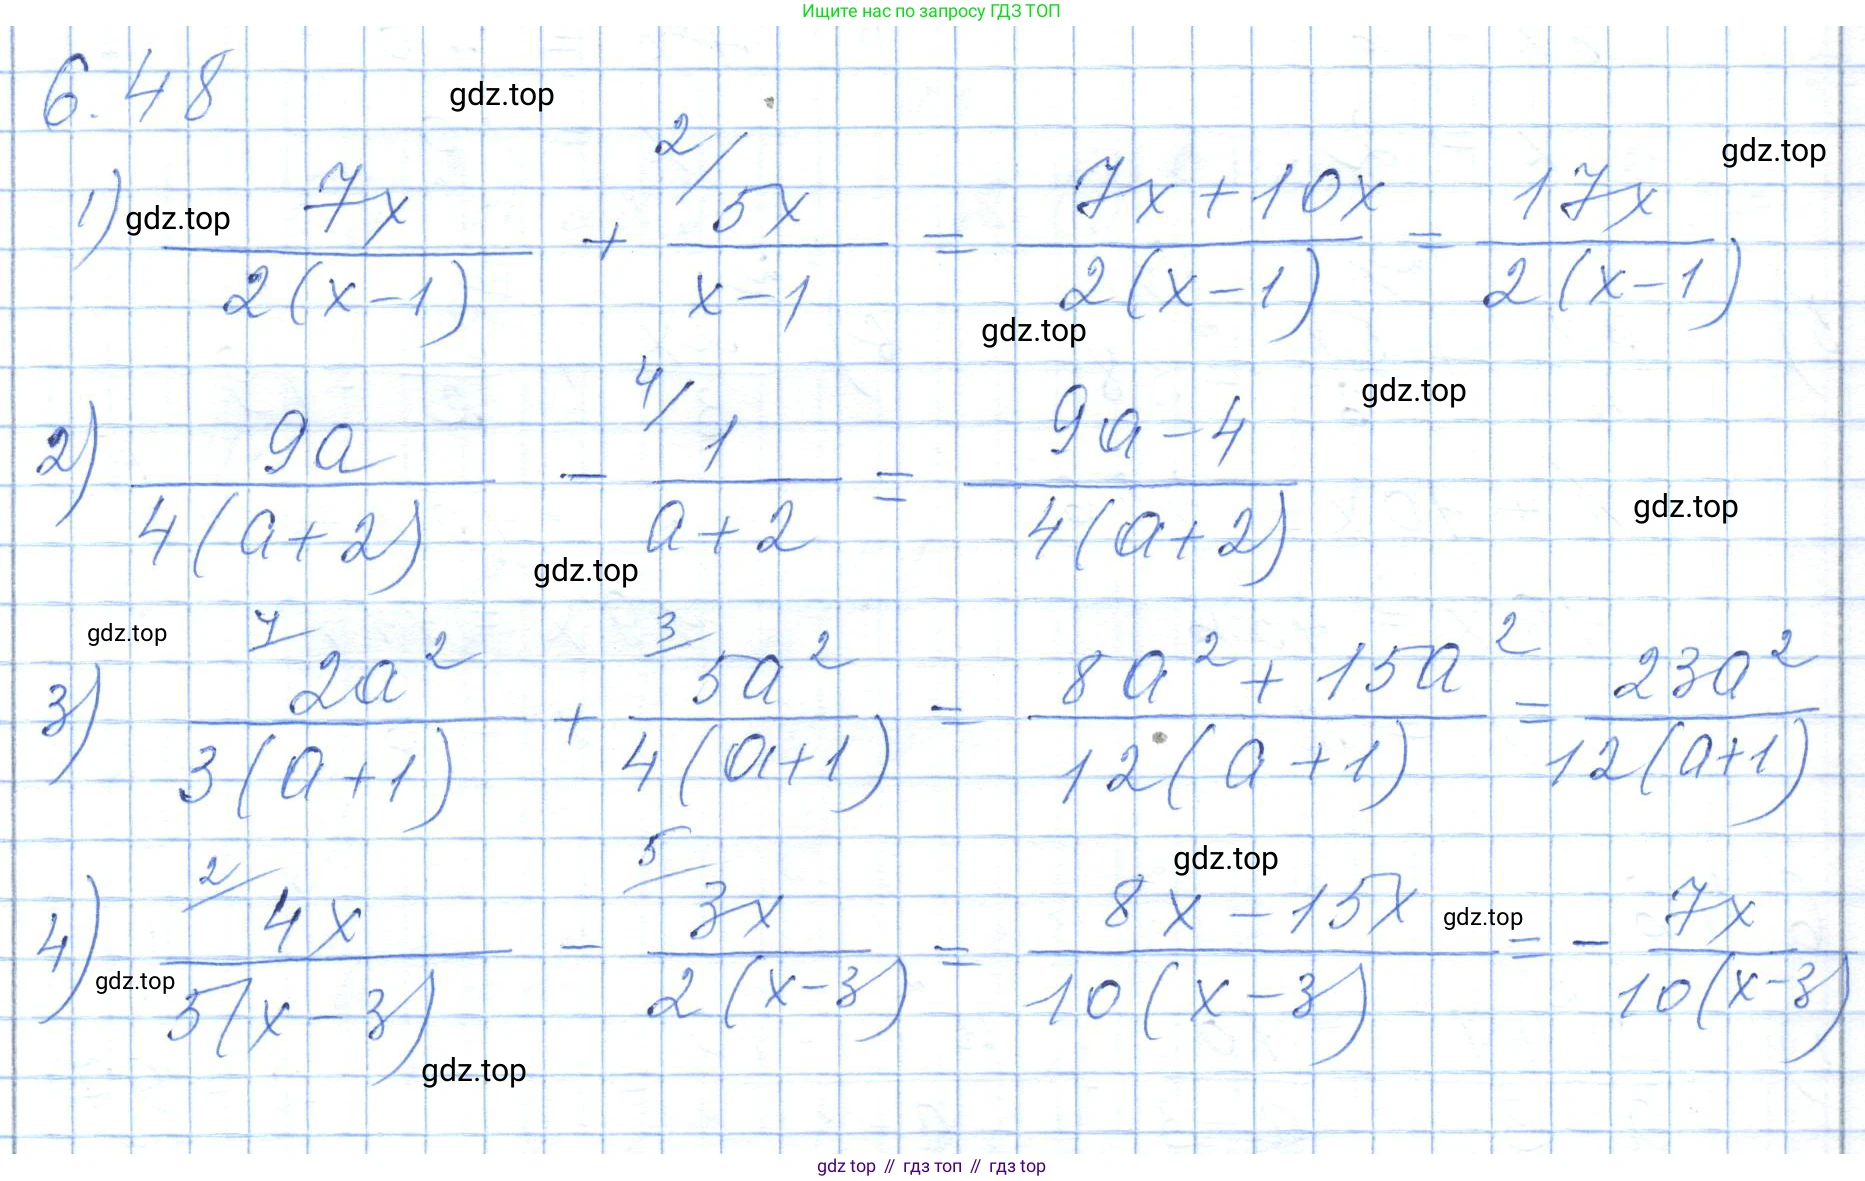 Ищите нас по запросу ГДЗ ТОП
6.48
gdz.top
gdz.top
1) gdz.top 7x/(2(x-1)) + 2/ 5x/(x-1) = (7x+10x)/(2(x-1)) = 17x/(2(x-1))
gdz.top
gdz.top
2) 9a/(4(a+2)) - 4/ 1/(a+2) = (9a-4)/(4(a+2))
gdz.top
gdz.top
gdz.top
3) 4/ 2a²/(3(a+1)) + 3/ 5a²/(4(a+1)) = (8a²+15a²)/(12(a+1)) = 23a²/(12(a+1))
gdz.top
4) 2/ 4x/(5(x-3)) - 5/ 3x/(2(x-3)) = (8x-15x)/(10(x-3)) gdz.top = - 7x/(10(x-3))
gdz.top
gdz.top
gdz top // гдз топ // гдз top